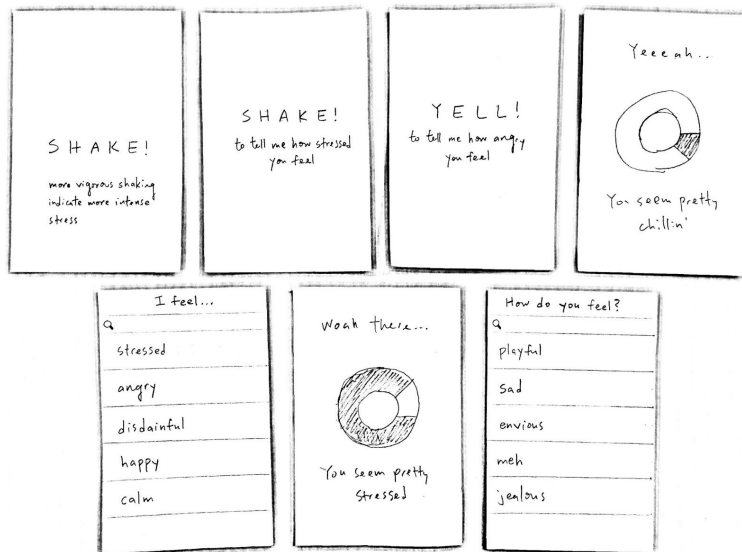 SHAKE!
more vigorous shaking
indicate more intense
stress
SHAKE!
to tell me how stressed
you feel
YELL!
to tell me how angry
you feel
Yeeeah...
You seem pretty
chillin'
I feel...
stressed
angry
disdainful
happy
calm
Woah there...
You seem pretty
stressed
How do you feel?
playful
sad
envious
meh
jealous